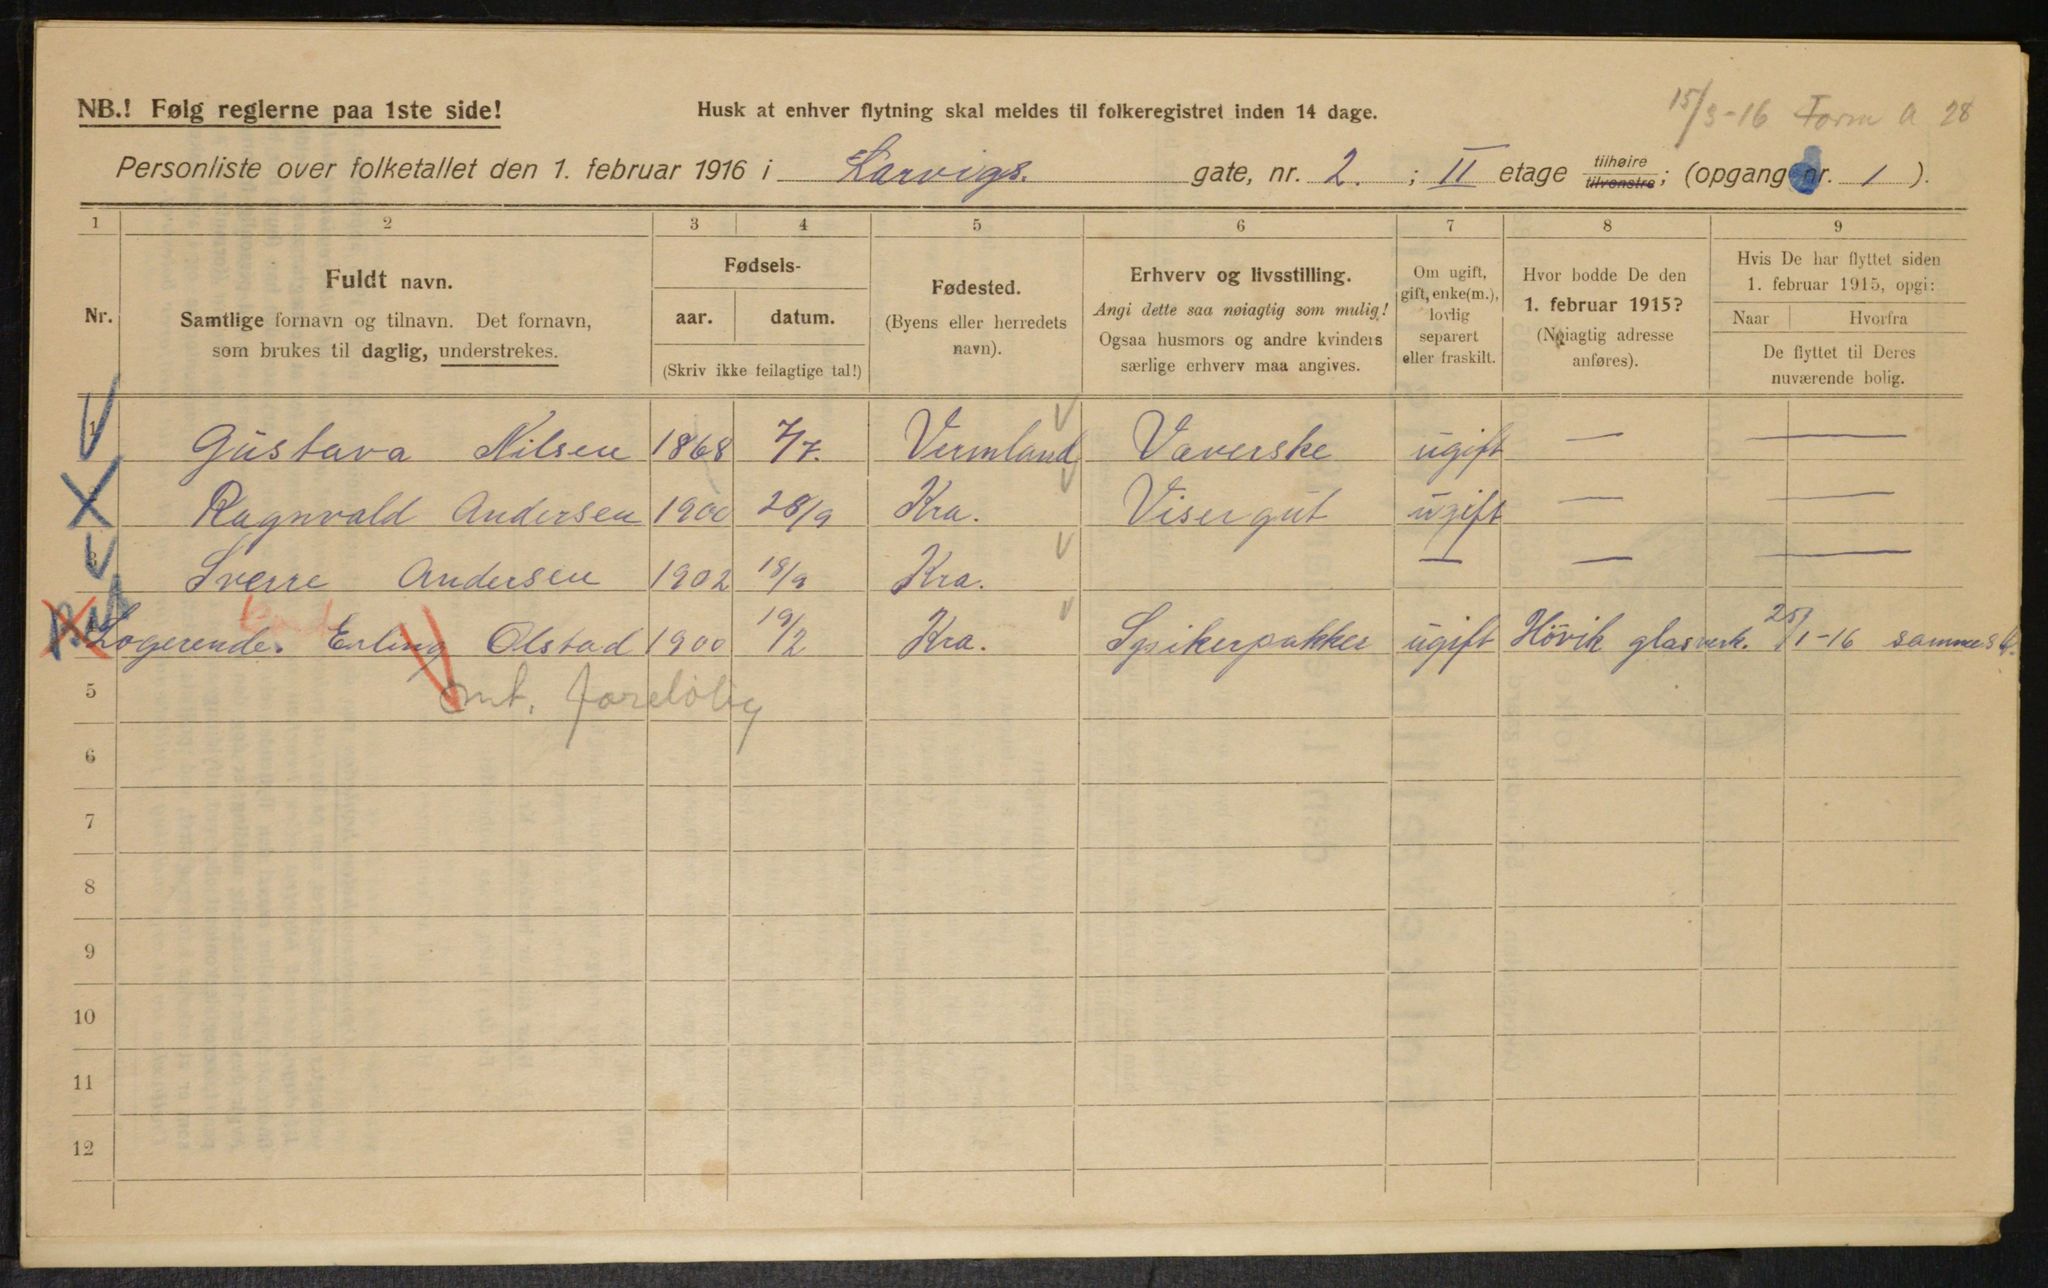 15/3-16 Form A 28
NB.! Følg reglerne paa 1ste side! Husk at enhver flytning skal meldes til folkeregistret inden 14 dage.
Personliste over folketallet den 1. februar 1916 i Larvigs. gate, nr. 2. ; II etage tilhøire tilvenstre; (opgang nr. 1 ).
1 2 3 4 5 6 7 8 9
Nr.
Fuldt navn.
Samtlige fornavn og tilnavn. Det fornavn,
som brukes til daglig, understrekes.
Fødsels-
aar. datum.
(Skriv ikke feilagtige tal!)
Fødested.
(Byens eller herredets
navn).
Erhverv og livsstilling.
Angi dette saa nøiagtig som mulig!
Ogsaa husmors og andre kvinders
særlige erhverv maa angives.
Om ugift,
gift, enke(m.),
lovlig
separert
eller fraskilt.
Hvor bodde De den
1. februar 1915?
(Nøiagtig adresse
anføres).
Hvis De har flyttet siden
1. februar 1915, opgi:
Naar Hvorfra
De flyttet til Deres
nuværende bolig.
1 Gustava Nilsen 1868 7/7. Vermland Væverske ugift — —
Ragnvald Andersen 1900 28/9 Kra. Visergut ugift — —
3 Sverre Andersen 1902 18/9 Kra. — — —
Logerende. Erling Olstad 1900 19/2 Kra. Spikerpakker ugift Hövik glasverk. 25/1-16 sammest.
5 omt. foreløbig
6
7
8
9
10
11
12